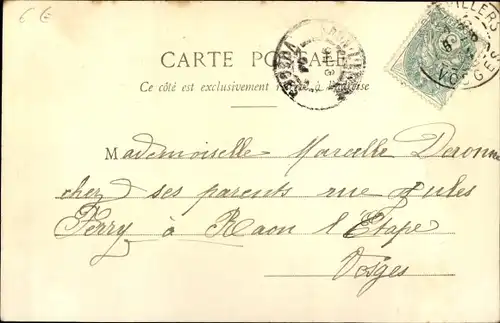 6 €
CARTE POSTALE
Ce côté est exclusivement réservé à l'adresse
VOSGES
Mademoiselle Marcelle Deronne
chez ses parents rue Jules
Ferry à Raon l'Étape
Vosges